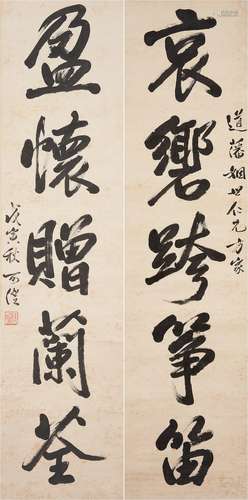 哀響跨箏笛
道藩姻世仁兄方家
盈懷贈蘭荃
戊寅秋